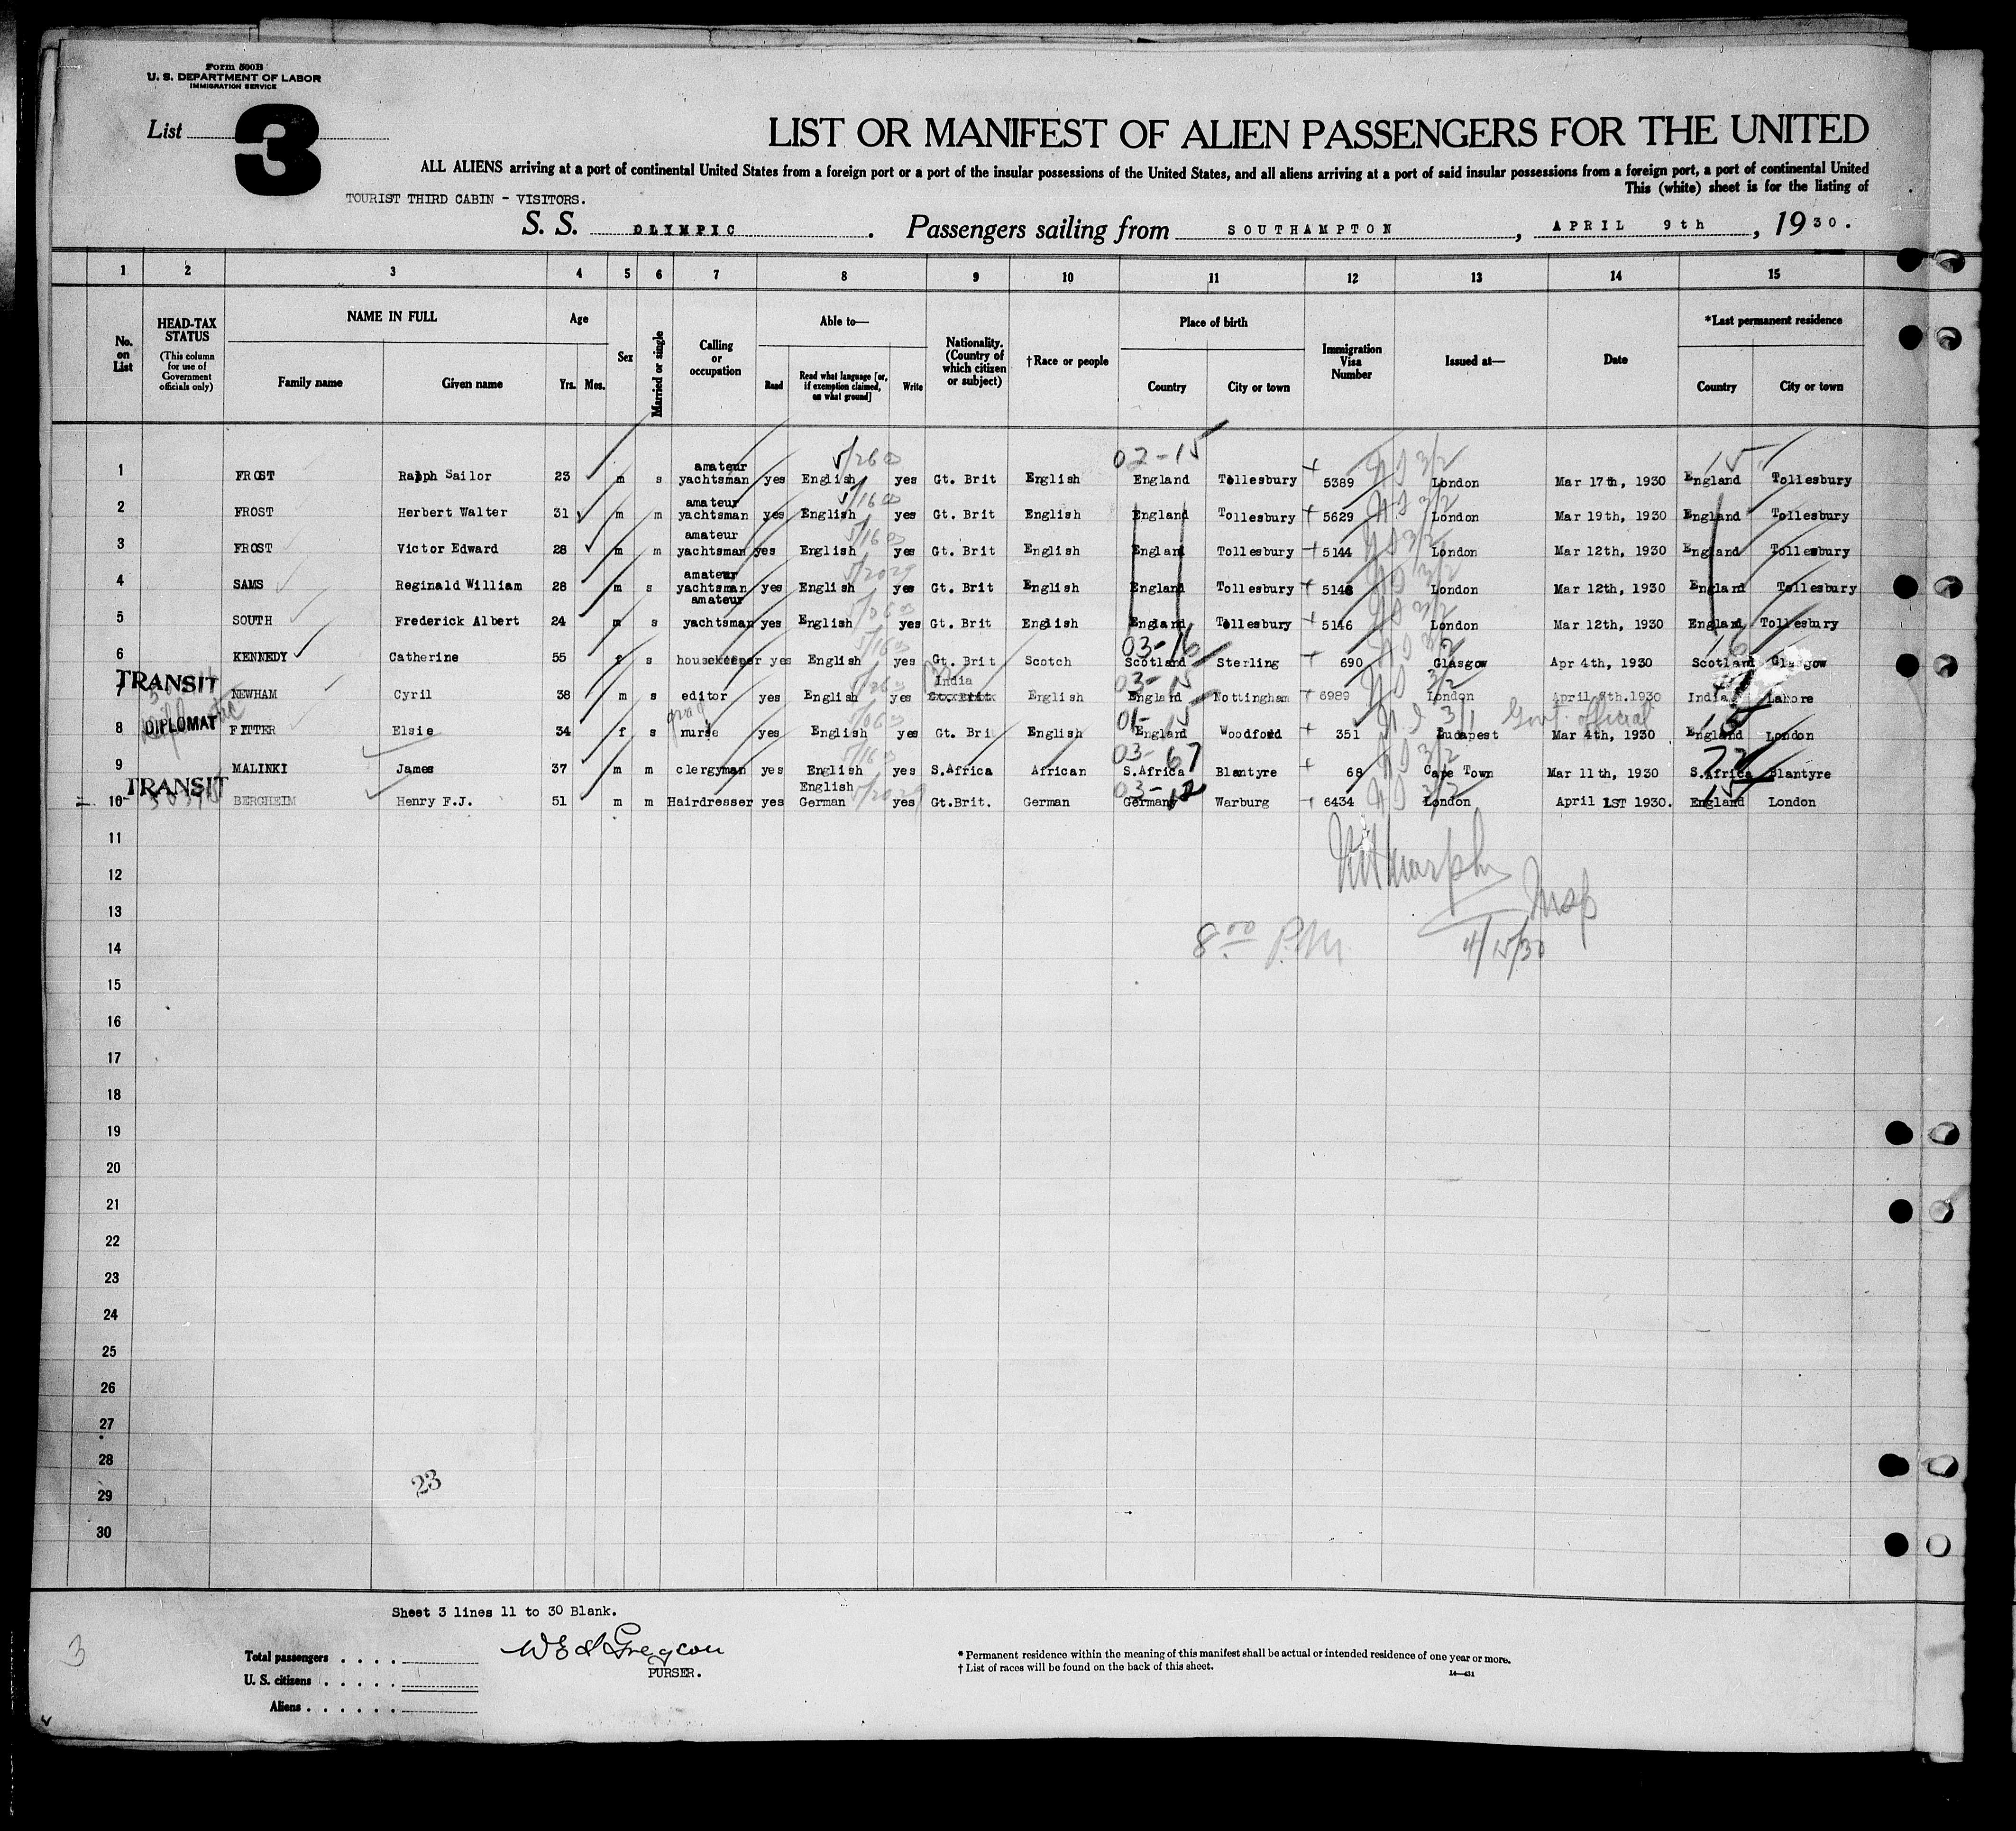 Form 500B
U. S. DEPARTMENT OF LABOR
IMMIGRATION SERVICE
List 3
LIST OR MANIFEST OF ALIEN PASSENGERS FOR THE UNITED
ALL ALIENS arriving at a port of continental United States from a foreign port or a port of the insular possessions of the United States, and all aliens arriving at a port of said insular possessions from a foreign port, a port of continental United
This (white) sheet is for the listing of
TOURIST THIRD CABIN - VISITORS.
S. S. OLYMPIC . Passengers sailing from SOUTHAMPTON , APRIL 9th , 1930.
1 2 3 4 5 6 7 8 9 10 11 12 13 14 15
No. on List
HEAD-TAX STATUS (This column for use of Government officials only)
NAME IN FULL
Family name Given name
Age
Yrs. Mos.
Sex
Married or single
Calling or occupation
Able to—
Read
Read what language [or, if exemption claimed, on what ground]
Write
Nationality. (Country of which citizen or subject)
†Race or people
Place of birth
Country City or town
Immigration Visa Number
Issued at—
Date
*Last permanent residence
Country City or town
02-15
1 FROST Ralph Sailor 23 m s amateur yachtsman yes English yes Gt. Brit English England Tollesbury 5389 London Mar 17th, 1930 England Tollesbury
2 FROST Herbert Walter 31 m m amateur yachtsman yes English yes Gt. Brit English England Tollesbury 5629 London Mar 19th, 1930 England Tollesbury
3 FROST Victor Edward 28 m m amateur yachtsman yes English yes Gt. Brit English England Tollesbury 5144 London Mar 12th, 1930 England Tollesbury
4 SAMS Reginald William 28 m s amateur yachtsman yes English yes Gt. Brit English England Tollesbury London Mar 12th, 1930 England Tollesbury
5 SOUTH Frederick Albert 24 m s amateur yachtsman yes English yes Gt. Brit English England Tollesbury 5146 London Mar 12th, 1930 England Tollesbury
03-16
6 KENNEDY Catherine 55 f s housekeeper yes English yes Gt. Brit Scotch Scotland Sterling 690 Glasgow Apr 4th, 1930 Scotland Glasgow
TRANSIT
03-15
7 NEWHAM Cyril 38 m s editor yes English yes India English England Nottingham 6989 London April 8th.1930 India Lahore
DIPLOMAT
01-15
Govt. official
8 FITTER Elsie 34 f s nurse yes English yes Gt. Bri English England Woodford 351 Budapest Mar 4th, 1930 England London
03-67
9 MALINKI James 37 m m clergyman yes English yes S.Africa African S.Africa Blantyre 68 Cape Town Mar 11th, 1930 S.Africa Blantyre
TRANSIT
03-12
10 BERGHEIM Henry F.J. 51 m m Hairdresser yes English German yes Gt.Brit. German Germany Warburg 6434 London April 1ST 1930. England London
11
12
Insp
13
14
8:00 P.M. 4/15/30
15
16
17
18
19
20
21
22
23
24
25
26
27
28
23
29
30
Sheet 3 lines 11 to 30 Blank.
3
Total passengers
U. S. citizens
Aliens
PURSER.
* Permanent residence within the meaning of this manifest shall be actual or intended residence of one year or more.
† List of races will be found on the back of this sheet.
14—431